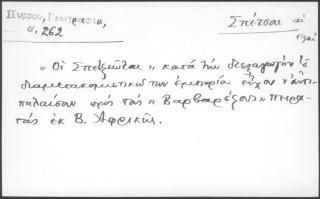 Πύρρου, Γεωγραφία,
σ. 262
Σπέτσαι αἱ
"Οἱ Σπετζιῶται" κατὰ τὴν διεξαγωγὴν
διαμετακομιστικῶν ἐμπορίου εἶχον ν' ἀντι-
παλαίσουν πρὸς τοὺς "Βαρβαρέζους" πειρα-
τὰς ἐκ Β. Ἀφρικῆς.